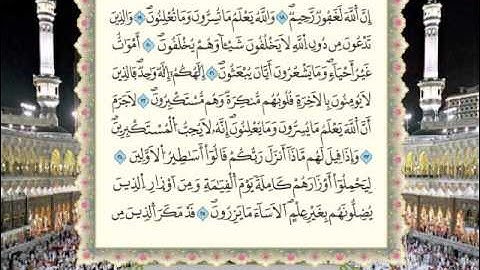 إِنَّ ٱللَّهَ لَغَفُورٌ رَّحِيمٌ ١٨ وَٱللَّهُ يَعْلَمُ مَا تُسِرُّونَ وَمَا تُعْلِنُونَ ١٩ وَٱلَّذِينَ
تَدْعُونَ مِن دُونِ ٱللَّهِ لَا يَخْلُقُونَ شَيْـًٔا وَهُمْ يُخْلَقُونَ ٢٠ أَمْوَٰتٌ
غَيْرُ أَحْيَآءٍ وَمَا يَشْعُرُونَ أَيَّانَ يُبْعَثُونَ ٢١ إِلَٰهُكُمْ إِلَٰهٌ وَٰحِدٌ فَٱلَّذِينَ
لَا يُؤْمِنُونَ بِٱلْأَخِرَةِ قُلُوبُهُم مُّنكِرَةٌ وَهُم مُّسْتَكْبِرُونَ ٢٢ لَا جَرَمَ
أَنَّ ٱللَّهَ يَعْلَمُ مَا يُسِرُّونَ وَمَا يُعْلِنُونَ إِنَّهُۥ لَا يُحِبُّ ٱلْمُسْتَكْبِرِينَ
٢٣ وَإِذَا قِيلَ لَهُم مَّاذَآ أَنزَلَ رَبُّكُمْ قَالُوٓا۟ أَسَٰطِيرُ ٱلْأَوَّلِينَ ٢٤
لِيَحْمِلُوٓا۟ أَوْزَارَهُمْ كَامِلَةً يَوْمَ ٱلْقِيَٰمَةِ وَمِنْ أَوْزَارِ ٱلَّذِينَ
يُضِلُّونَهُم بِغَيْرِ عِلْمٍ أَلَا سَآءَ مَا يَزِرُونَ ٢٥ قَدْ مَكَرَ ٱلَّذِينَ مِن